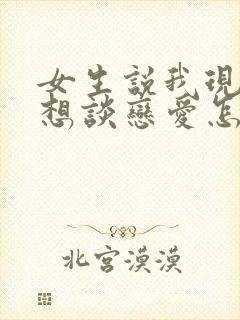 女生説我現
想談戀愛怎
北宮漠漠